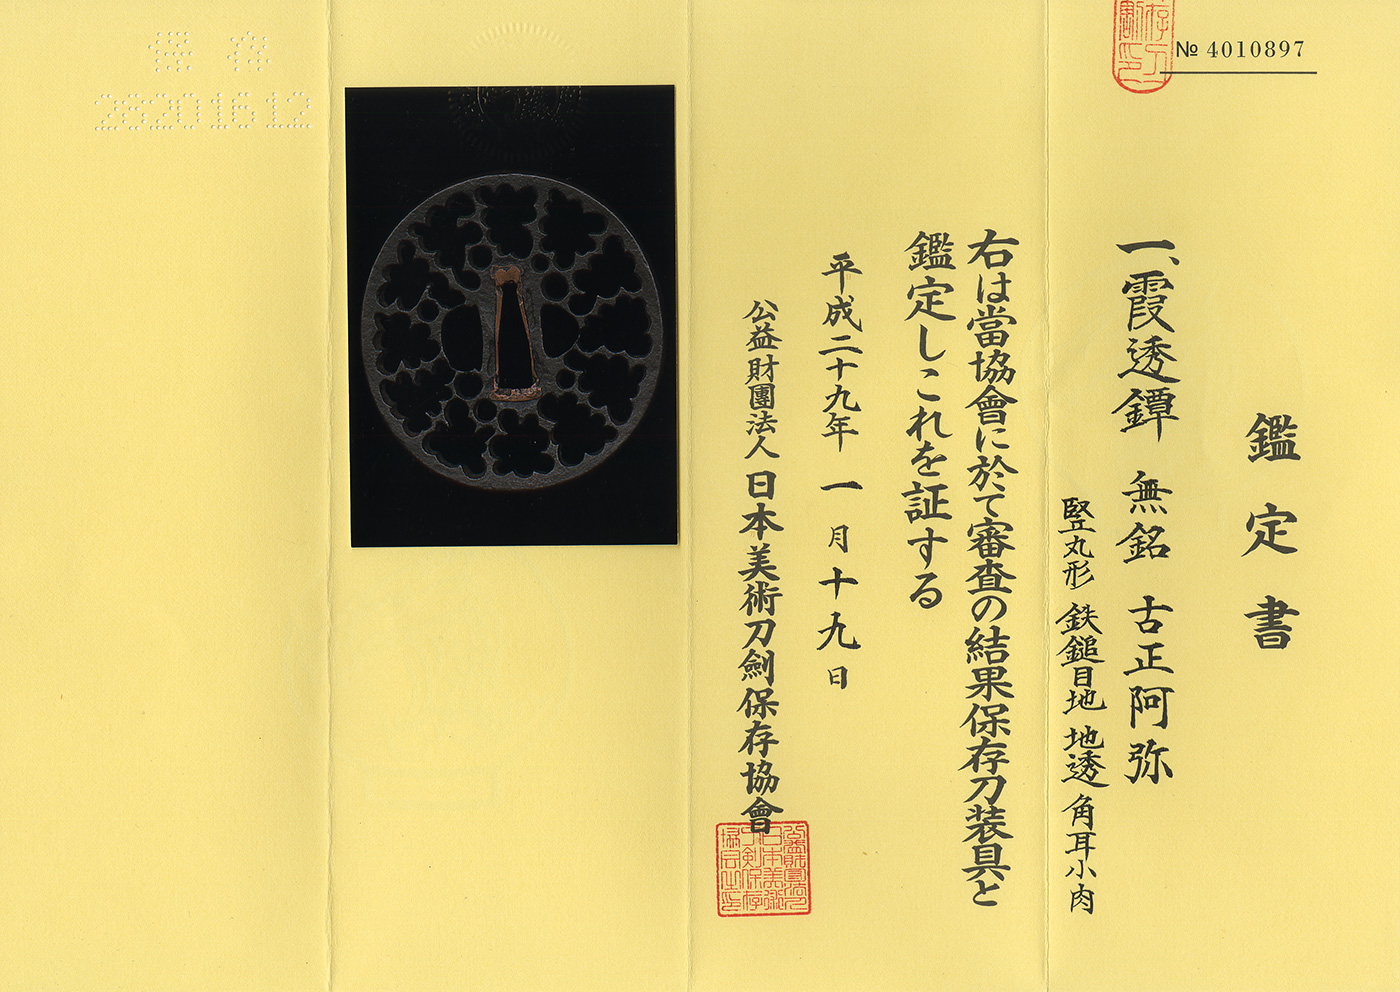 № 4010897
鑑定書
一、霞透鐔 無銘 古正阿弥
竪丸形 鉄鎚目地 地透 角耳小肉
右は當協會に於て審査の結果保存刀装具と
鑑定しこれを証する
平成二十九年 一月十九日
公益財團法人 日本美術刀劍保存協會
保存
28201612